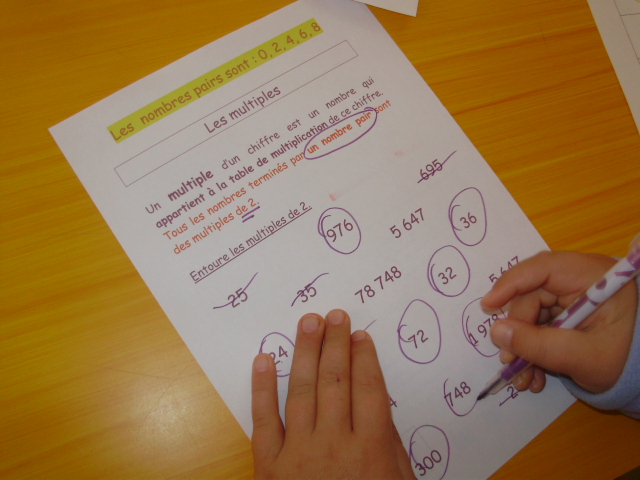 Les nombres pairs sont : 0, 2, 4, 6, 8
Les multiples
Un multiple d'un chiffre est un nombre qui
appartient à la table de multiplication de ce chiffre.
Tous les nombres terminés par un nombre pair sont
des multiples de 2.
Entoure les multiples de 2.
695
976 5 647 36
25 35 78 748 32 5 647
24 72 1 978
748
300